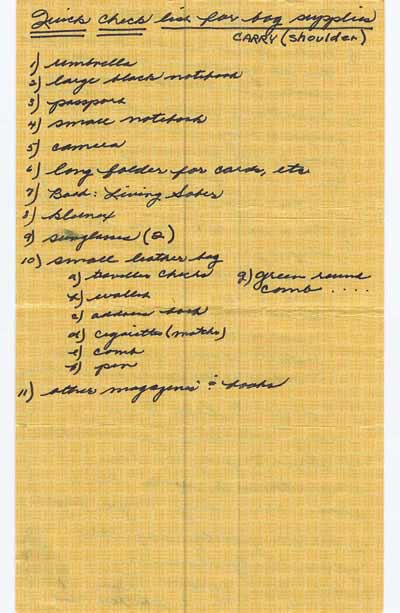 Quick check list for bag supplies
CARRY (shoulder)
1) umbrella
2) large black notebook
3) passport
4) small notebook
5) camera
6) long folder for cards, etc
7) Book: Living Sober
8) kleenex
9) sunglasses (2)
10) small leather bag
a) travelers checks
b) wallet
c) address book
d) cigarettes (matches)
e) comb
f) pen
g) green round
comb ....
11) other magazines & books